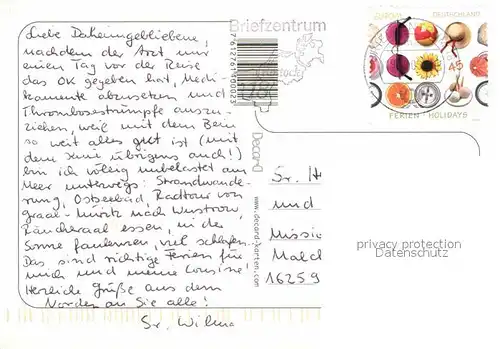 Liebe Daheimgebliebene,
nachdem der Arzt mir
einen Tag vor der Reise
das OK gegeben hat, Medi-
kamente abzusetzen und
Thrombosestrümpfe auszu-
ziehen, weil mit dem Bein
so weit alles gut ist (mit
dem Knie übrigens auch!)
bin ich völlig unbelastet am
Meer unterwegs: Strandwande-
rung, Ostseebad, Radtour von
Graal-Müritz nach Wustrow,
Räucheraal essen, in der
Sonne faulenzen, viel schlafen.
Das sind richtige Ferien für
mich und meine Cousine!
Herzliche Grüße aus dem
Norden an Sie alle!
Sr. Wilma
Briefzentrum
7612761100023
Decard
www.decard-karten.com
EUROPA DEUTSCHLAND
45
FERIEN · HOLIDAYS
Sr.
und
Missio
Malch
16259
privacy protection
Datenschutz